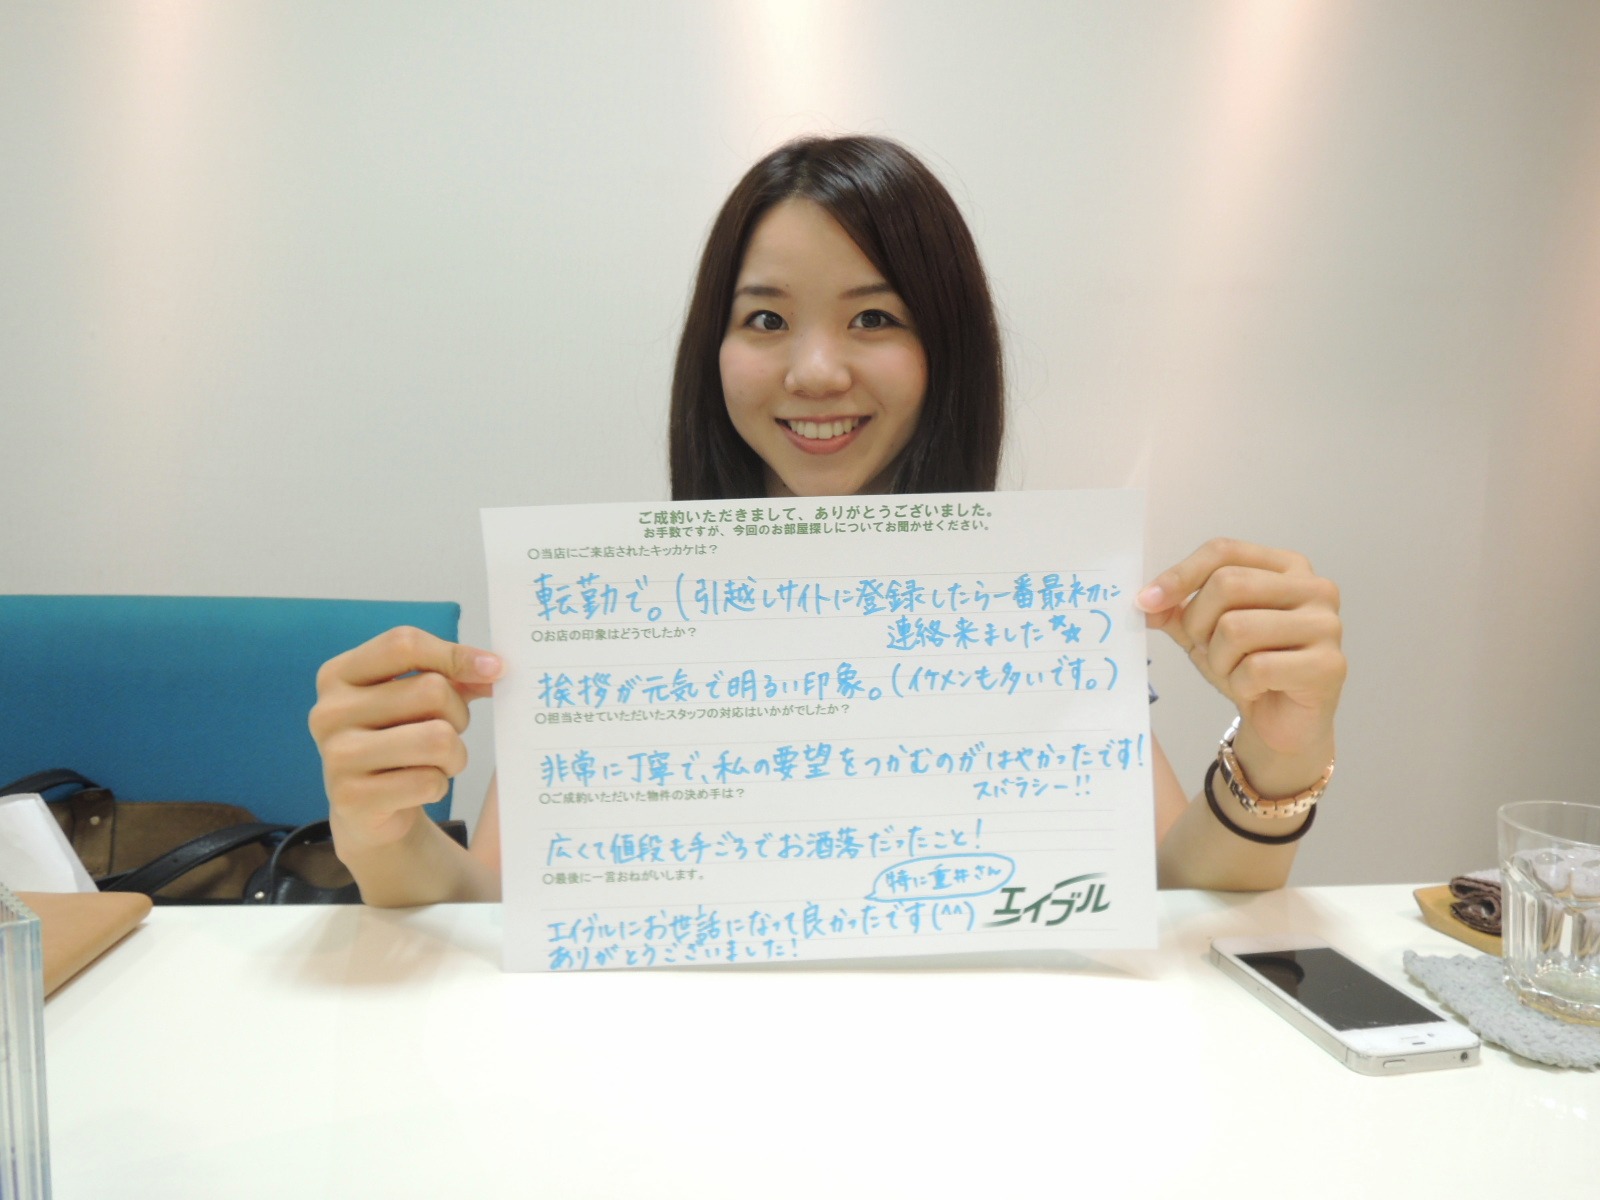 ご成約いただきまして、ありがとうございました。
お手数ですが、今回のお部屋探しについてお聞かせください。
〇当店にご来店されたキッカケは？
転勤で。(引越しサイトに登録したら一番最初に
連絡来ました☆☆)
〇お店の印象はどうでしたか？
挨拶が元気で明るい印象。(イケメンも多いです。)
〇担当させていただいたスタッフの対応はいかがでしたか？
非常に丁寧で、私の要望をつかむのがはやかったです！
スバラシー!!
〇ご成約いただいた物件の決め手は？
広くて値段も手ごろでお洒落だったこと！
〇最後に一言おねがいします。
特に重井さん
エイブルにお世話になって良かったです(^^)
ありがとうございました！
エイブル